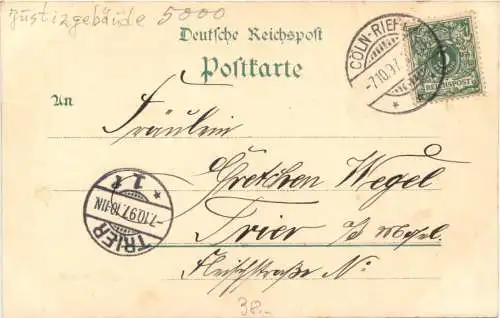 Justizgebäude 5000
Deutsche Reichspost
Postkarte
CÖLN-RIEHL
7.10.97
REICHSPOST
An
Fräulein
Gretchen Wegel
Trier a/d Mosel.
Fleischstraße No:
TRIER
7.10.97.10-11N.
* 1 *
38.-